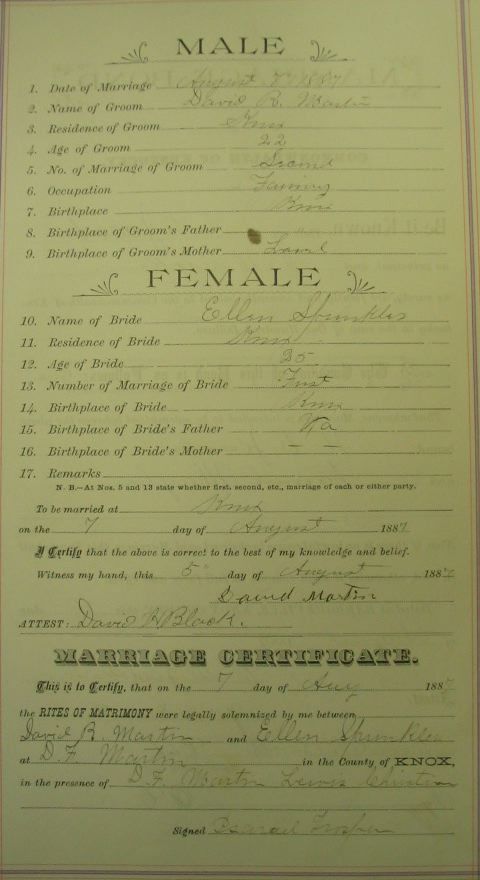 MALE
1. Date of Marriage August 7 1887
2. Name of Groom David R. Martin
3. Residence of Groom Knox
4. Age of Groom 22
5. No. of Marriage of Groom Second
6. Occupation Farming
7. Birthplace Knox
8. Birthplace of Groom's Father
9. Birthplace of Groom's Mother Laurel
FEMALE
10. Name of Bride Ellen Spunkles
11. Residence of Bride Knox
12. Age of Bride 25
13. Number of Marriage of Bride First
14. Birthplace of Bride Knox
15. Birthplace of Bride's Father Va
16. Birthplace of Bride's Mother — —
17. Remarks
N. B.—At Nos. 5 and 13 state whether first, second, etc., marriage of each or either party.
To be married at Knox
on the 7 day of August 1887
I Certify that the above is correct to the best of my knowledge and belief.
Witness my hand, this 5" day of August 1887
David Martin
ATTEST: David H Black.
MARRIAGE CERTIFICATE.
This is to Certify, that on the 7 day of Aug 1887
the RITES OF MATRIMONY were legally solemnized by me between
David R. Martin and Ellen
at D. F. Martin in the County of KNOX,
in the presence of D. F. Martin Lewis Christian
Signed